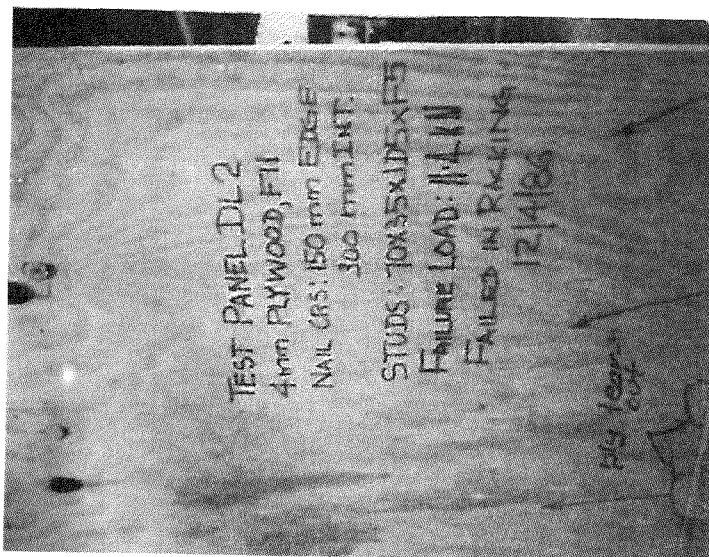 TEST PANEL DL2
4mm PLYWOOD, F11
NAIL CRS: 150mm EDGE
300 mm INT.
STUDS: 70X35X1D5XF5
FAILURE LOAD: 11.2 kN
FAILED IN RACKING
12/4/86
Ply tear
out